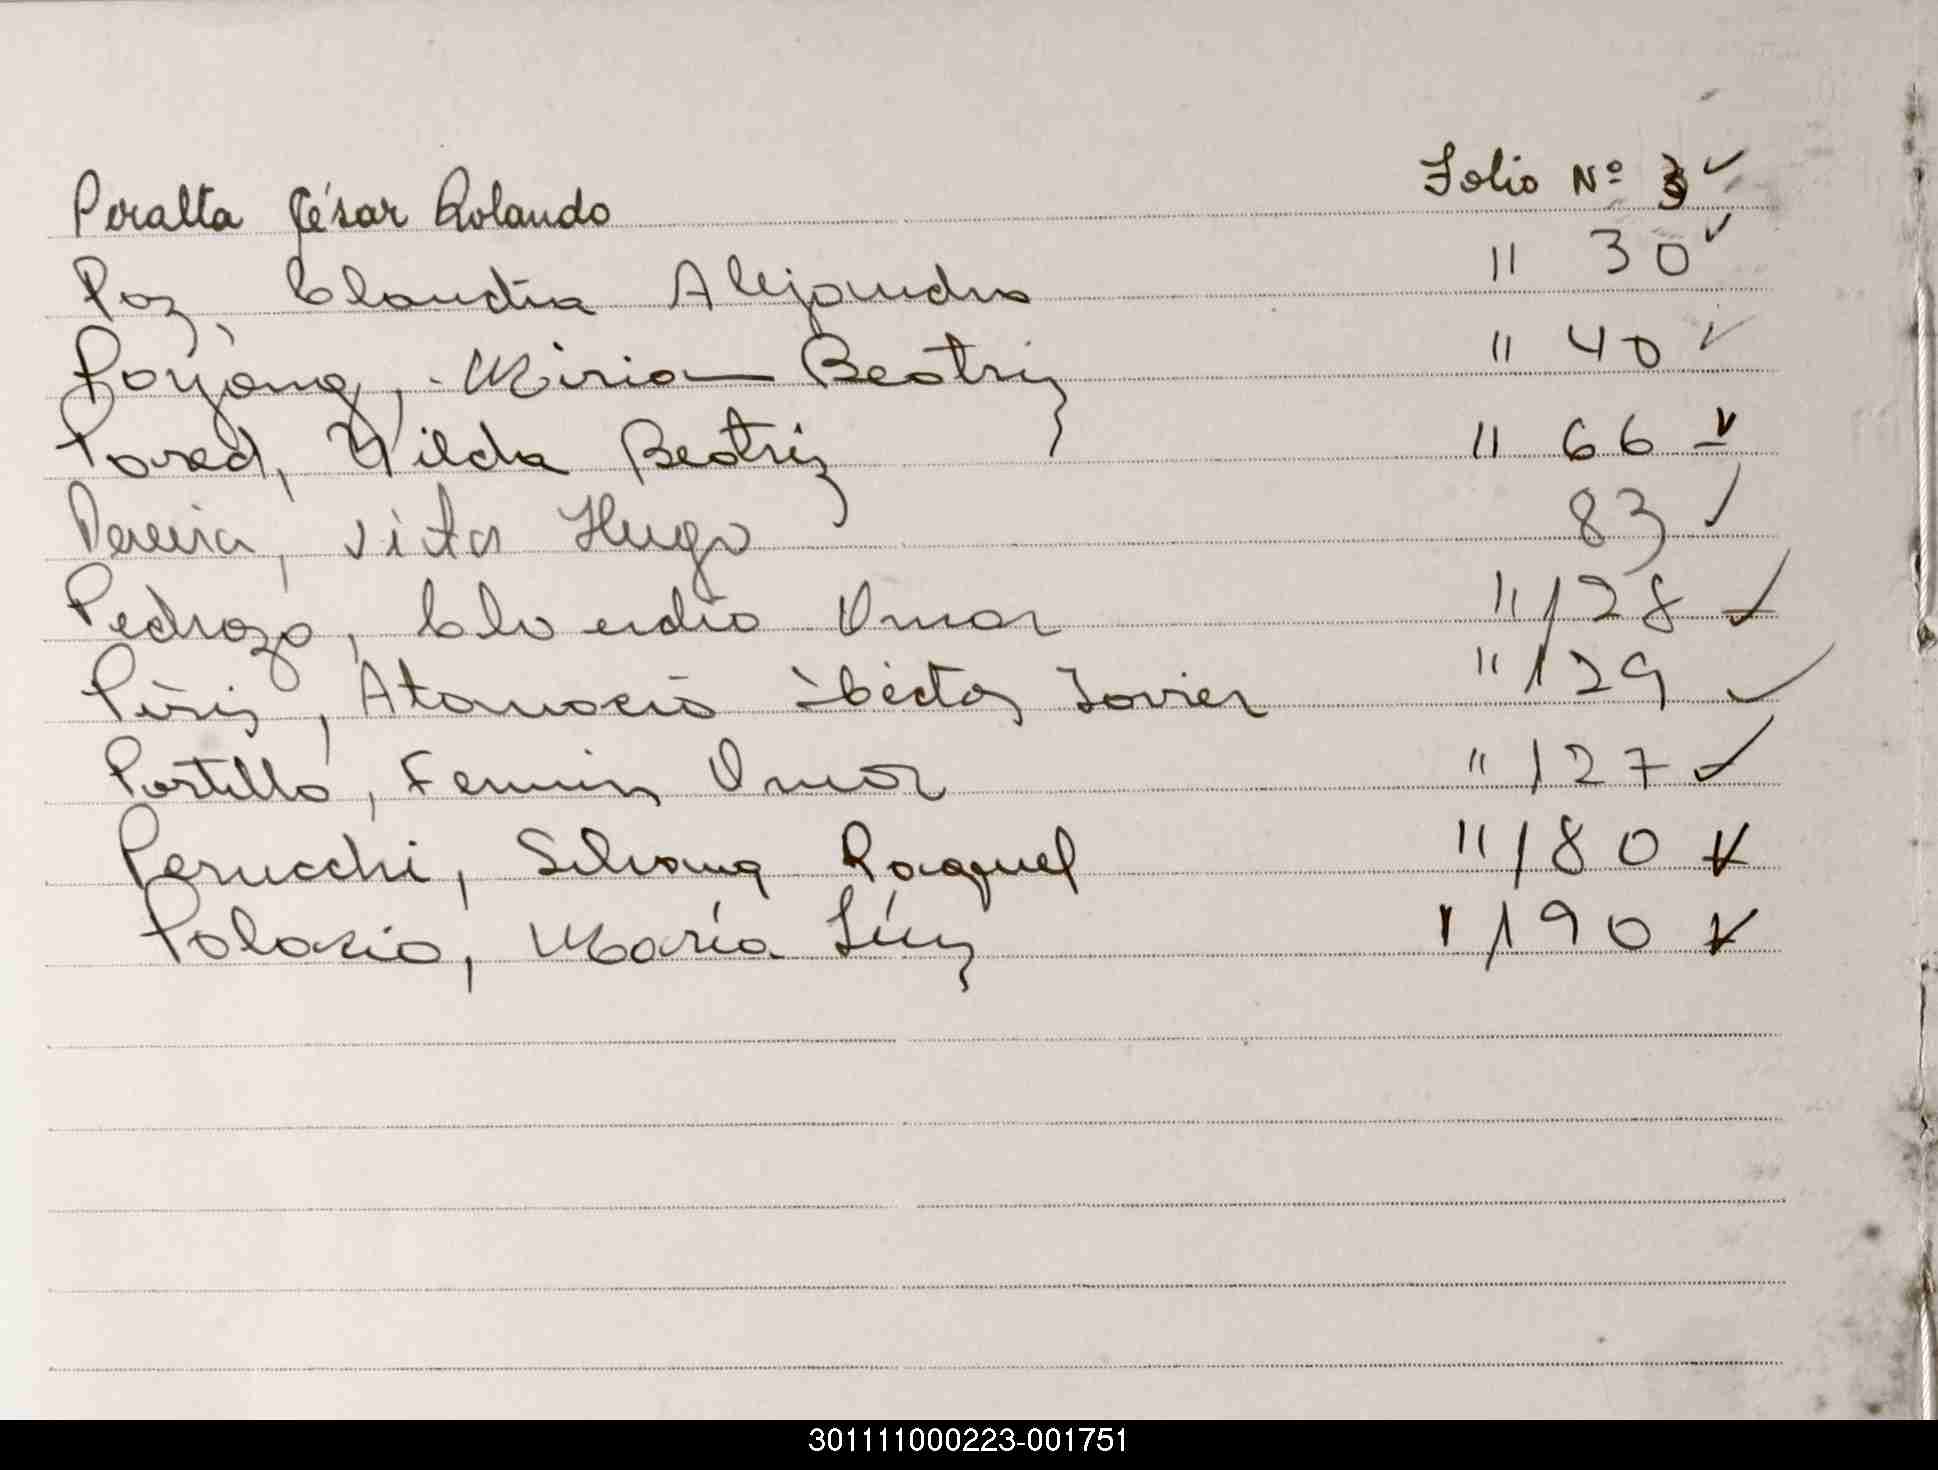 Peralta César Rolando Folio Nº 3 ✓
Paz, Claudia Alejandra " 30 ✓
Payóng, Mirian Beatriz " 40 ✓
Pared, Hilda Beatriz " 66 ✓
Pereira, Victor Hugo 83 ✓
Pedrozo, Claudio Omar " 128 ✓
Píriz, Atanacio Héctor Javier " 129 ✓
Portillo, Fermin Omar " 127 ✓
Perucchi, Silvana Raquel " 180 ✓
Palacio, María Lúz " 190 ✓
301111000223-001751